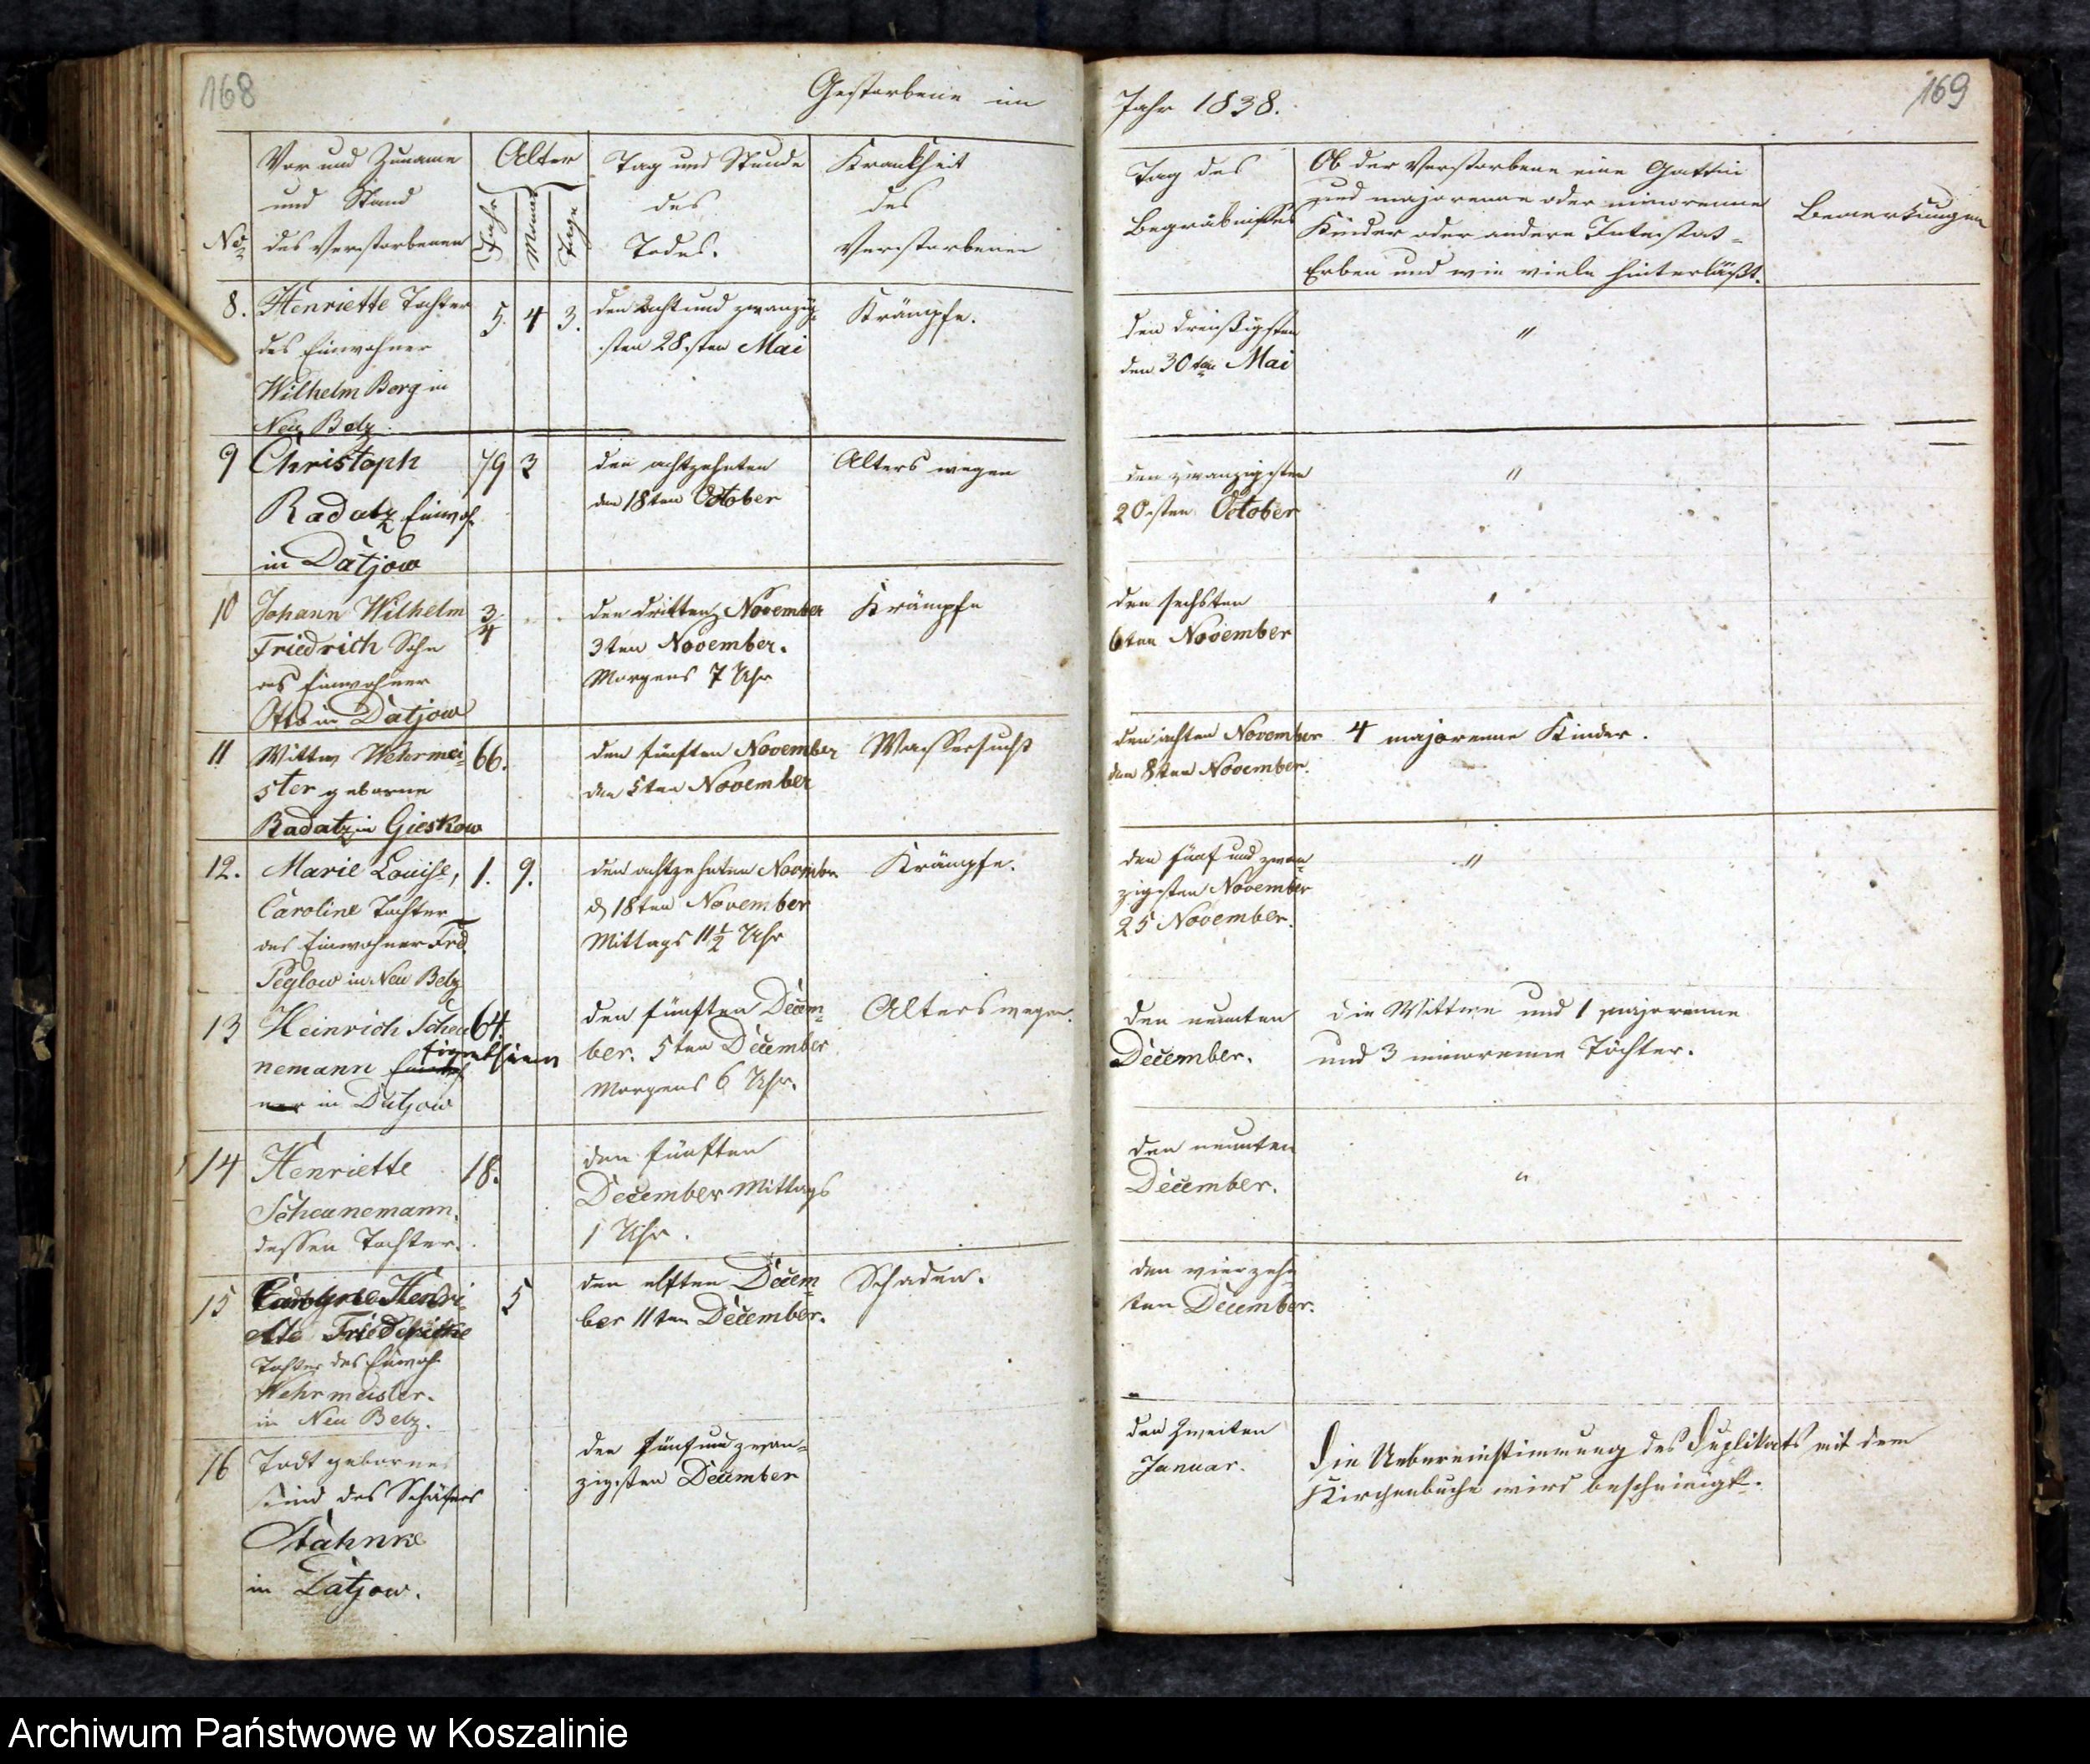 168
Gestorbene im
Jahr 1838.
169
No
Vor und Zuname
und Stand
des Verstorbenen
Alter
Jahr
Monat
Tage
Tag und Stunde
des
Todes.
Krankheit
des
Verstorbenen
Tag des
Begräbnisses
Ob der Verstorbene eine Gattin
und majorenne oder minorenne
Kinder oder andere Intestat-
Erben und wie viele hinterläßt.
Bemerkungen
8.
Henriette Tochter
des Einwohner
Wilhelm Borg in
Neu Belz.
5. 4 3.
den acht und zwanzig-
sten 28sten Mai
Krämpfe.
den dreißigsten
den 30ten Mai
"
9
Christoph
Radatz Einwoh.
in Datjow
79 3
den achtzehnten
den 18ten October
Alters wegen
den zwanzigsten
20sten October
"
10
Johann Wilhelm
Friedrich Sohn
des Einwohner
Otto in Datjow
3/4
den dritten November
3ten November.
Morgens 7 Uhr
Krämpfe
den sechsten
6ten November
"
11
Wittwe Wehrmei-
ster geborne
Radatz in Gieskow
66.
den fünften November
den 5ten November
Wassersucht
den achten November
den 8ten November.
4 majorenne Kinder.
12.
Marie Louise,
Caroline Tochter
des Einwohner Frd.
Peglow in Neu Belz
1. 9.
den achtzehnten Novembr.
d 18ten November
Mittags 11 1/2 Uhr
Krämpfe.
den fünf und zwan-
zigsten November
25 November.
"
13
Heinrich Scheu
nemann
in Datjow
64.
den fünften Decem-
ber. 5ten December
Morgens 6 Uhr.
Alters wegen.
den neunten
December.
die Wittwe und 1 majorenne
und 3 minorenne Töchter.
14
Henriette
Scheunemann.
dessen Tochter.
18.
den fünften
December Mittags
1 Uhr.
den neunten
December.
"
15
Henri-
ette Friederike
Tochter des Einwoh.
Wehrmeister.
in Neu Belz.
5
den elften Decem-
ber 11ten December.
Schaden.
den vierzehn
ten December.
16
Todt gebornes
Kind des Schäfers
Stahnke
in Datjow.
den fünf und zwan-
zigsten December
den zweiten
Januar.
Die Uebereinstimmung des Duplikats mit dem
Kirchenbuche wird bescheinigt.
Archiwum Państwowe w Koszalinie